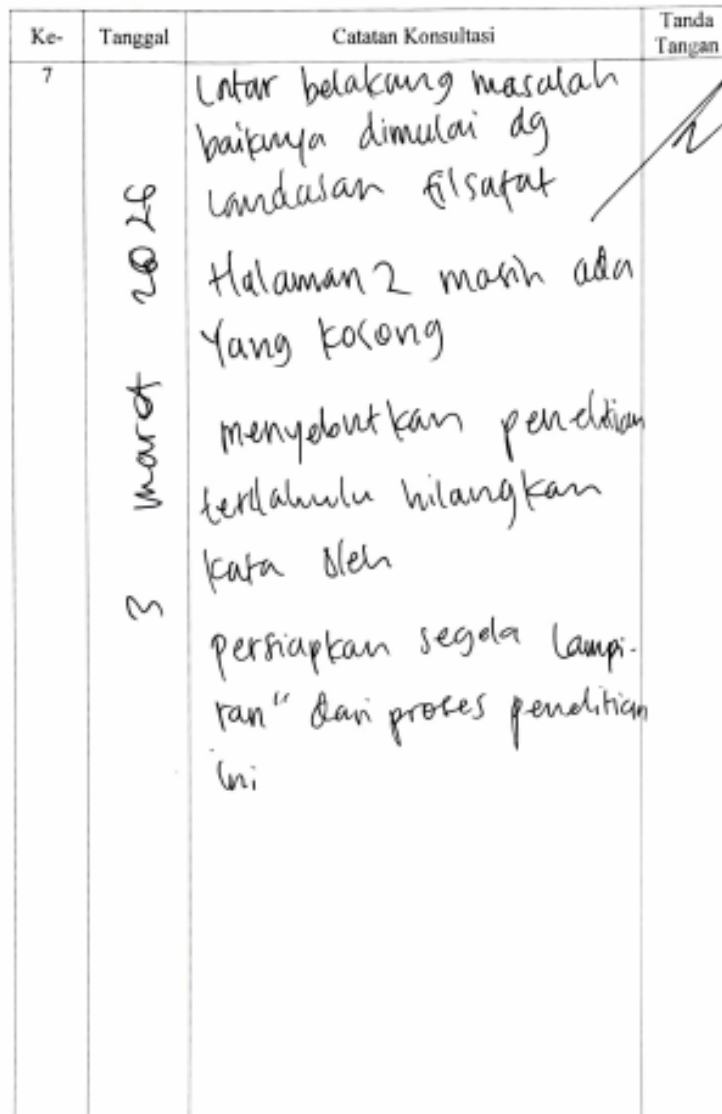 Ke-
Tanggal
Catatan Konsultasi
Tanda
Tangan
7
3 maret
Latar belakang masalah
baiknya dimulai dg
landasan filsafat
Halaman 2 masih ada
Yang kosong
menyebutkan penelitian
terdahulu hilangkan
kata oleh
persiapkan segala lampi-
ran" dari proses penelitian
ini